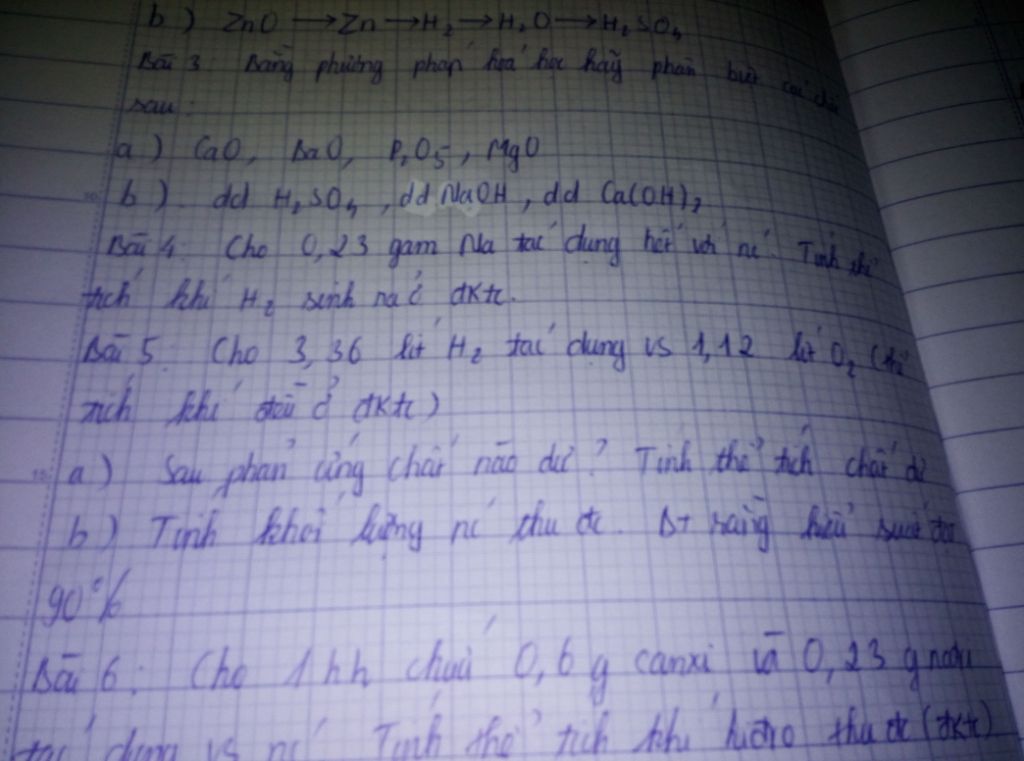 b) ZnO → Zn → H₂ → H₂O → H₂SO₄
Bài 3: Bằng phương pháp hoá học hãy phân biệt các chất
sau:
a) CaO, BaO, P₂O₅, MgO
b) dd H₂SO₄, dd NaOH, dd Ca(OH)₂
Bài 4: Cho 0,23 gam Na tác dụng hết với nc. Tính thể
tích khí H₂ sinh ra ở đktc.
Bài 5: Cho 3,36 lít H₂ tác dụng vs 1,12 lít O₂ (thể
tích khí đều ở đktc)
a) Sau phản ứng chất nào dư? Tính thể tích chất dư
b) Tính khối lượng nc thu đc. BT rằng hiệu suất đạt
90%
Bài 6: Cho 1 hh chứa 0,6 g canxi và 0,23 g natri
tác dụng vs nc. Tính thể tích khí hiđro thu đc (đktc)